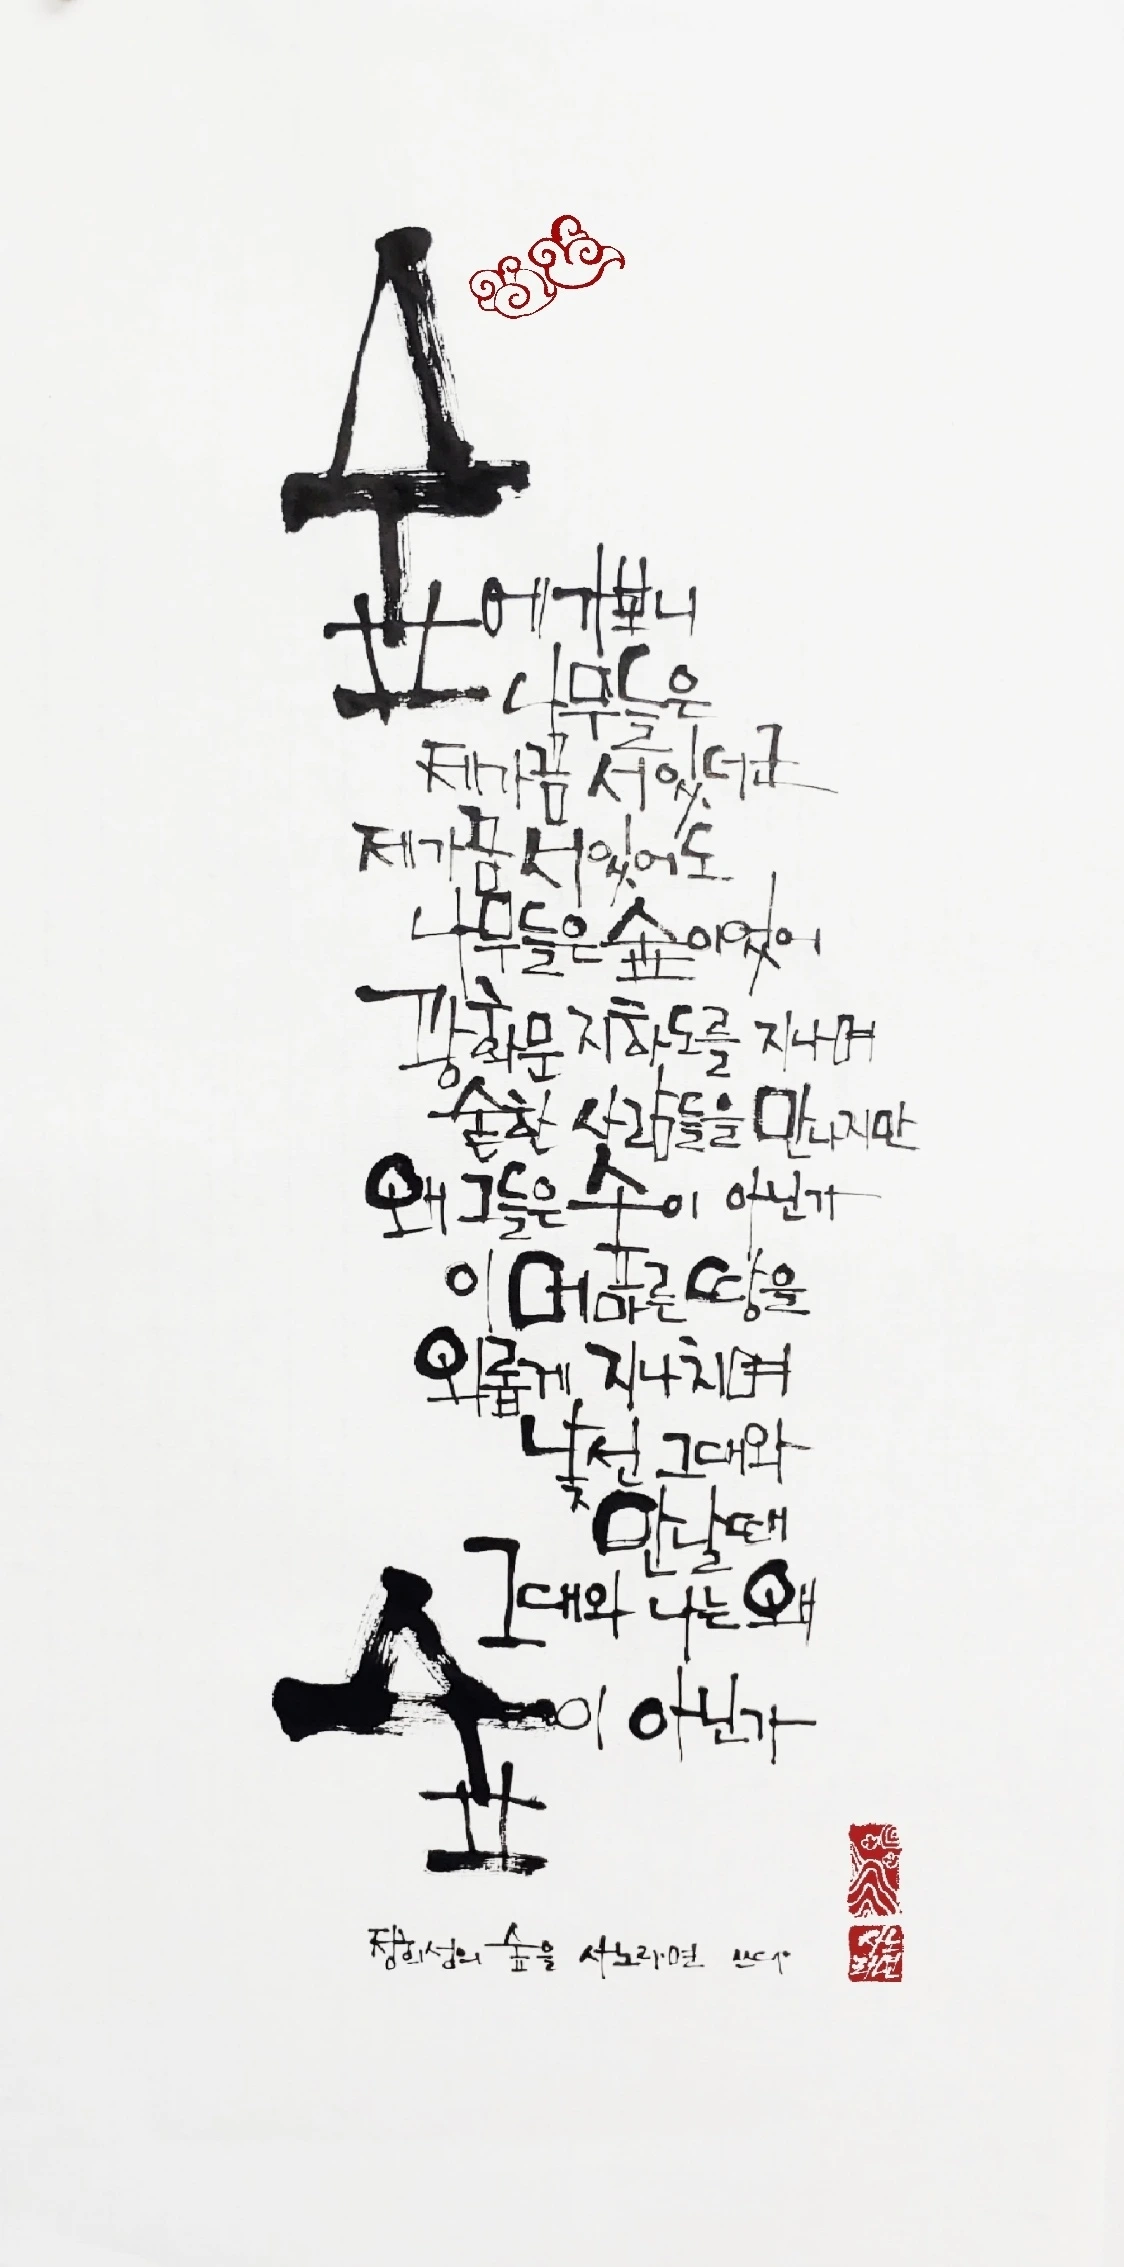 숲에 가보니
나무들은
제가끔 서있더군
제가끔 서있어도
나무들은 숲이었어
광화문 지하도를 지나며
숱한 사람들을 만나지만
왜 그들은 숲이 아닌가
이 메마른 땅을
외롭게 지나치며
낯선 그대와
만날때
그대와 나는 왜
숲이 아닌가
정희성의 숲을 시노라면 쓰다